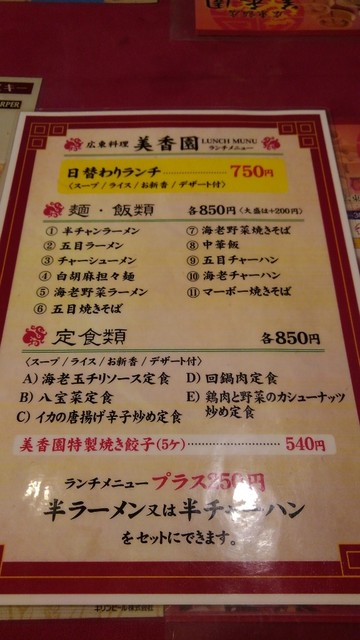 広東料理 美香園 LUNCH MUNU
ランチメニュー
日替わりランチ 750円
〈スープ / ライス / お新香 / デザート付〉
麺・飯類 各850円〈大盛は+200円〉
① 半チャンラーメン
② 五目ラーメン
③ チャーシューメン
④ 白胡麻担々麺
⑤ 海老野菜ラーメン
⑥ 五目焼きそば
⑦ 海老野菜焼きそば
⑧ 中華飯
⑨ 五目チャーハン
⑩ 海老チャーハン
⑪ マーボー焼きそば
定食類 各850円
〈スープ / ライス / お新香 / デザート付〉
A) 海老玉チリソース定食
B) 八宝菜定食
C) イカの唐揚げ辛子炒め定食
D) 回鍋肉定食
E) 鶏肉と野菜のカシューナッツ
炒め定食
美香園特製焼き餃子(5ケ) 540円
ランチメニュー プラス250円
半ラーメン又は半チャーハン
をセットにできます。
キリンビール株式会社